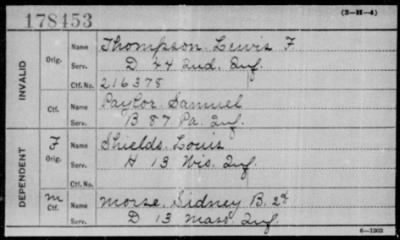 (3-H-4)
178453
INVALID
Orig. Name Thompson Lewis F.
Serv. D 44 Ind. Inf.
Ctf. No. 216378
Ctf. Name Paylor Samuel
Serv. B 87 Pa. Inf.
DEPENDENT
F Orig. Name Shields Louis
Serv. H 13 Wis. Inf.
Ctf. No.
M Ctf. Name Morse, Sidney B. 2d
Serv. D 13 Mass Inf.
6-1903